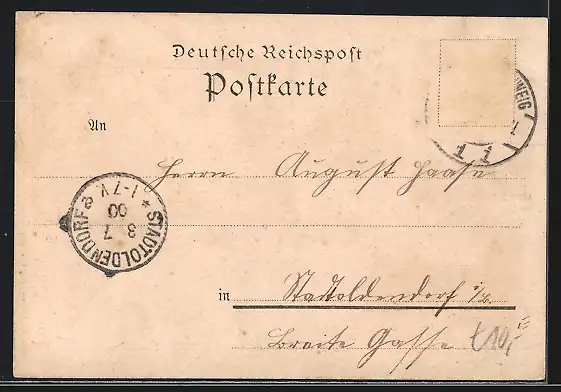 Deutsche Reichspost
Postkarte
WEIG
An
Herrn August Haase
STADTOLDENDORF
* 1-7V. a
8 7
00
in Stadtoldendorf i/B.
Breite Gasse
10,-